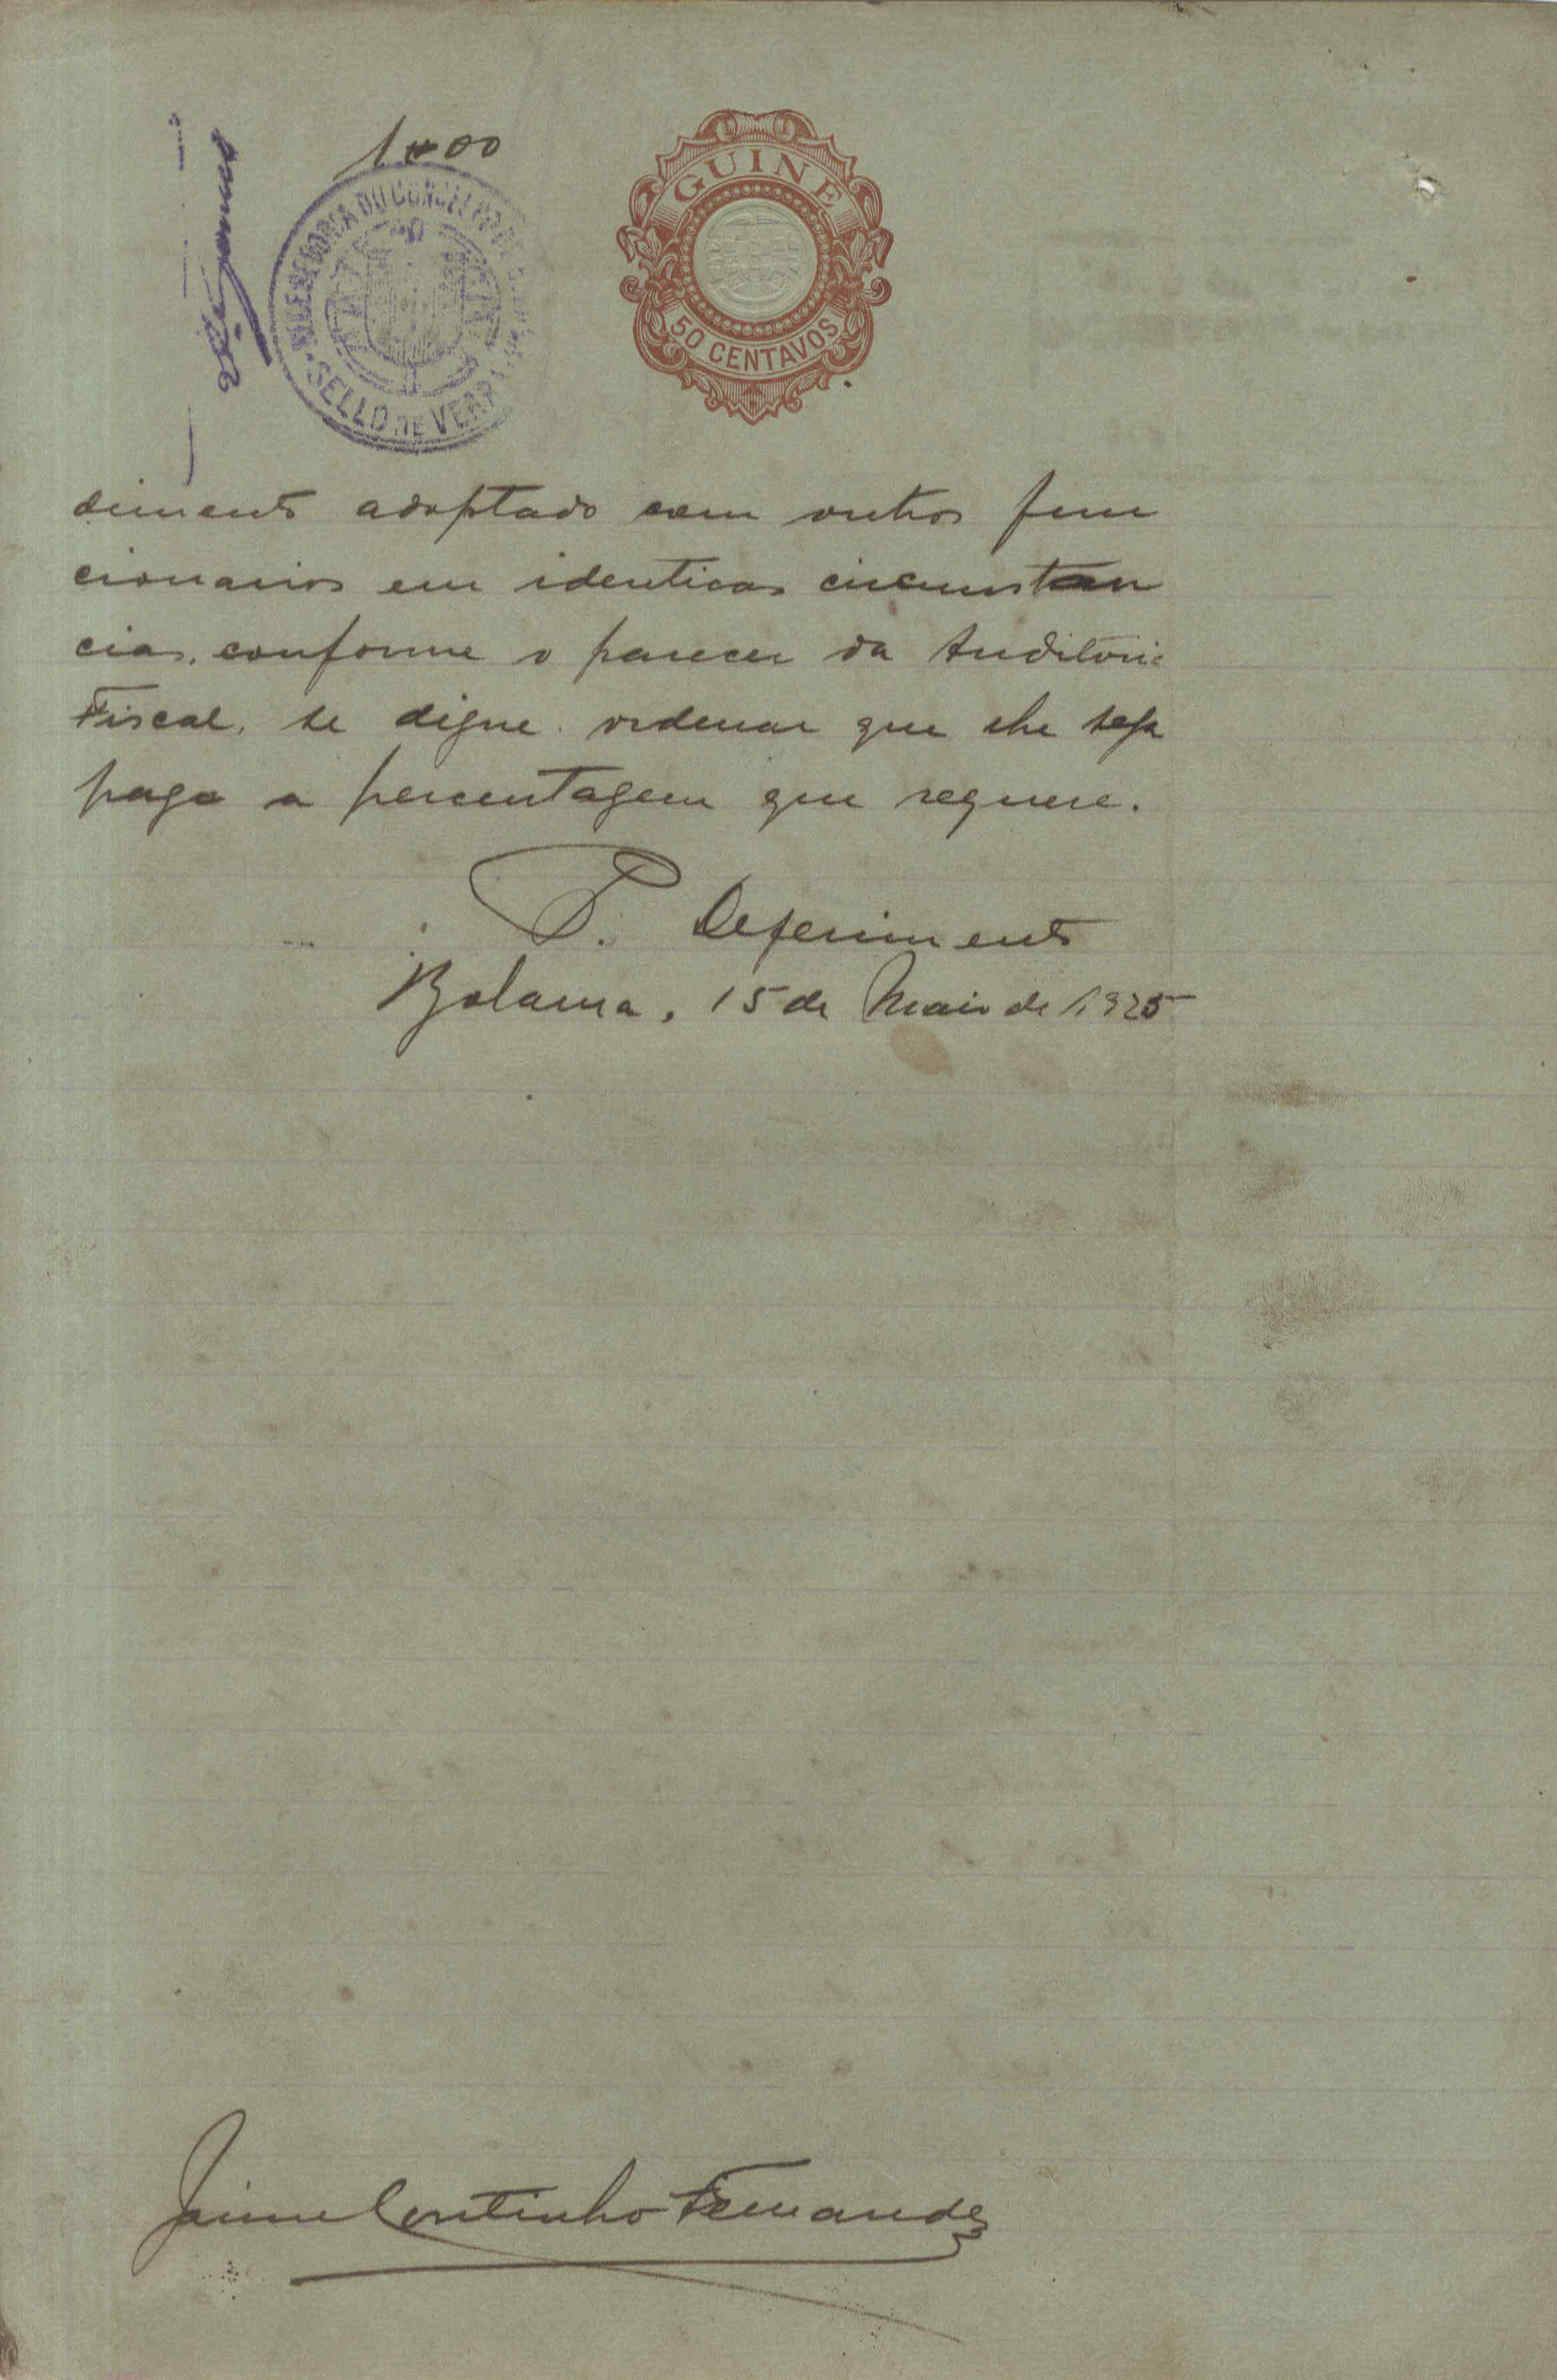 1$00
GUINE
50 CENTAVOS
DO CONCELHO DE
SELLO DE VERBA
dimento adoptado com outros fun
cionarios em identicas circunstan
cias, conforme o parecer da Auditoria
Fiscal, se digne ordenar que lhe seja
paga a percentagem que requere.
P. Deferimento
Bolama, 15 de Maio de 1925
Jaime Coutinho Fernandes